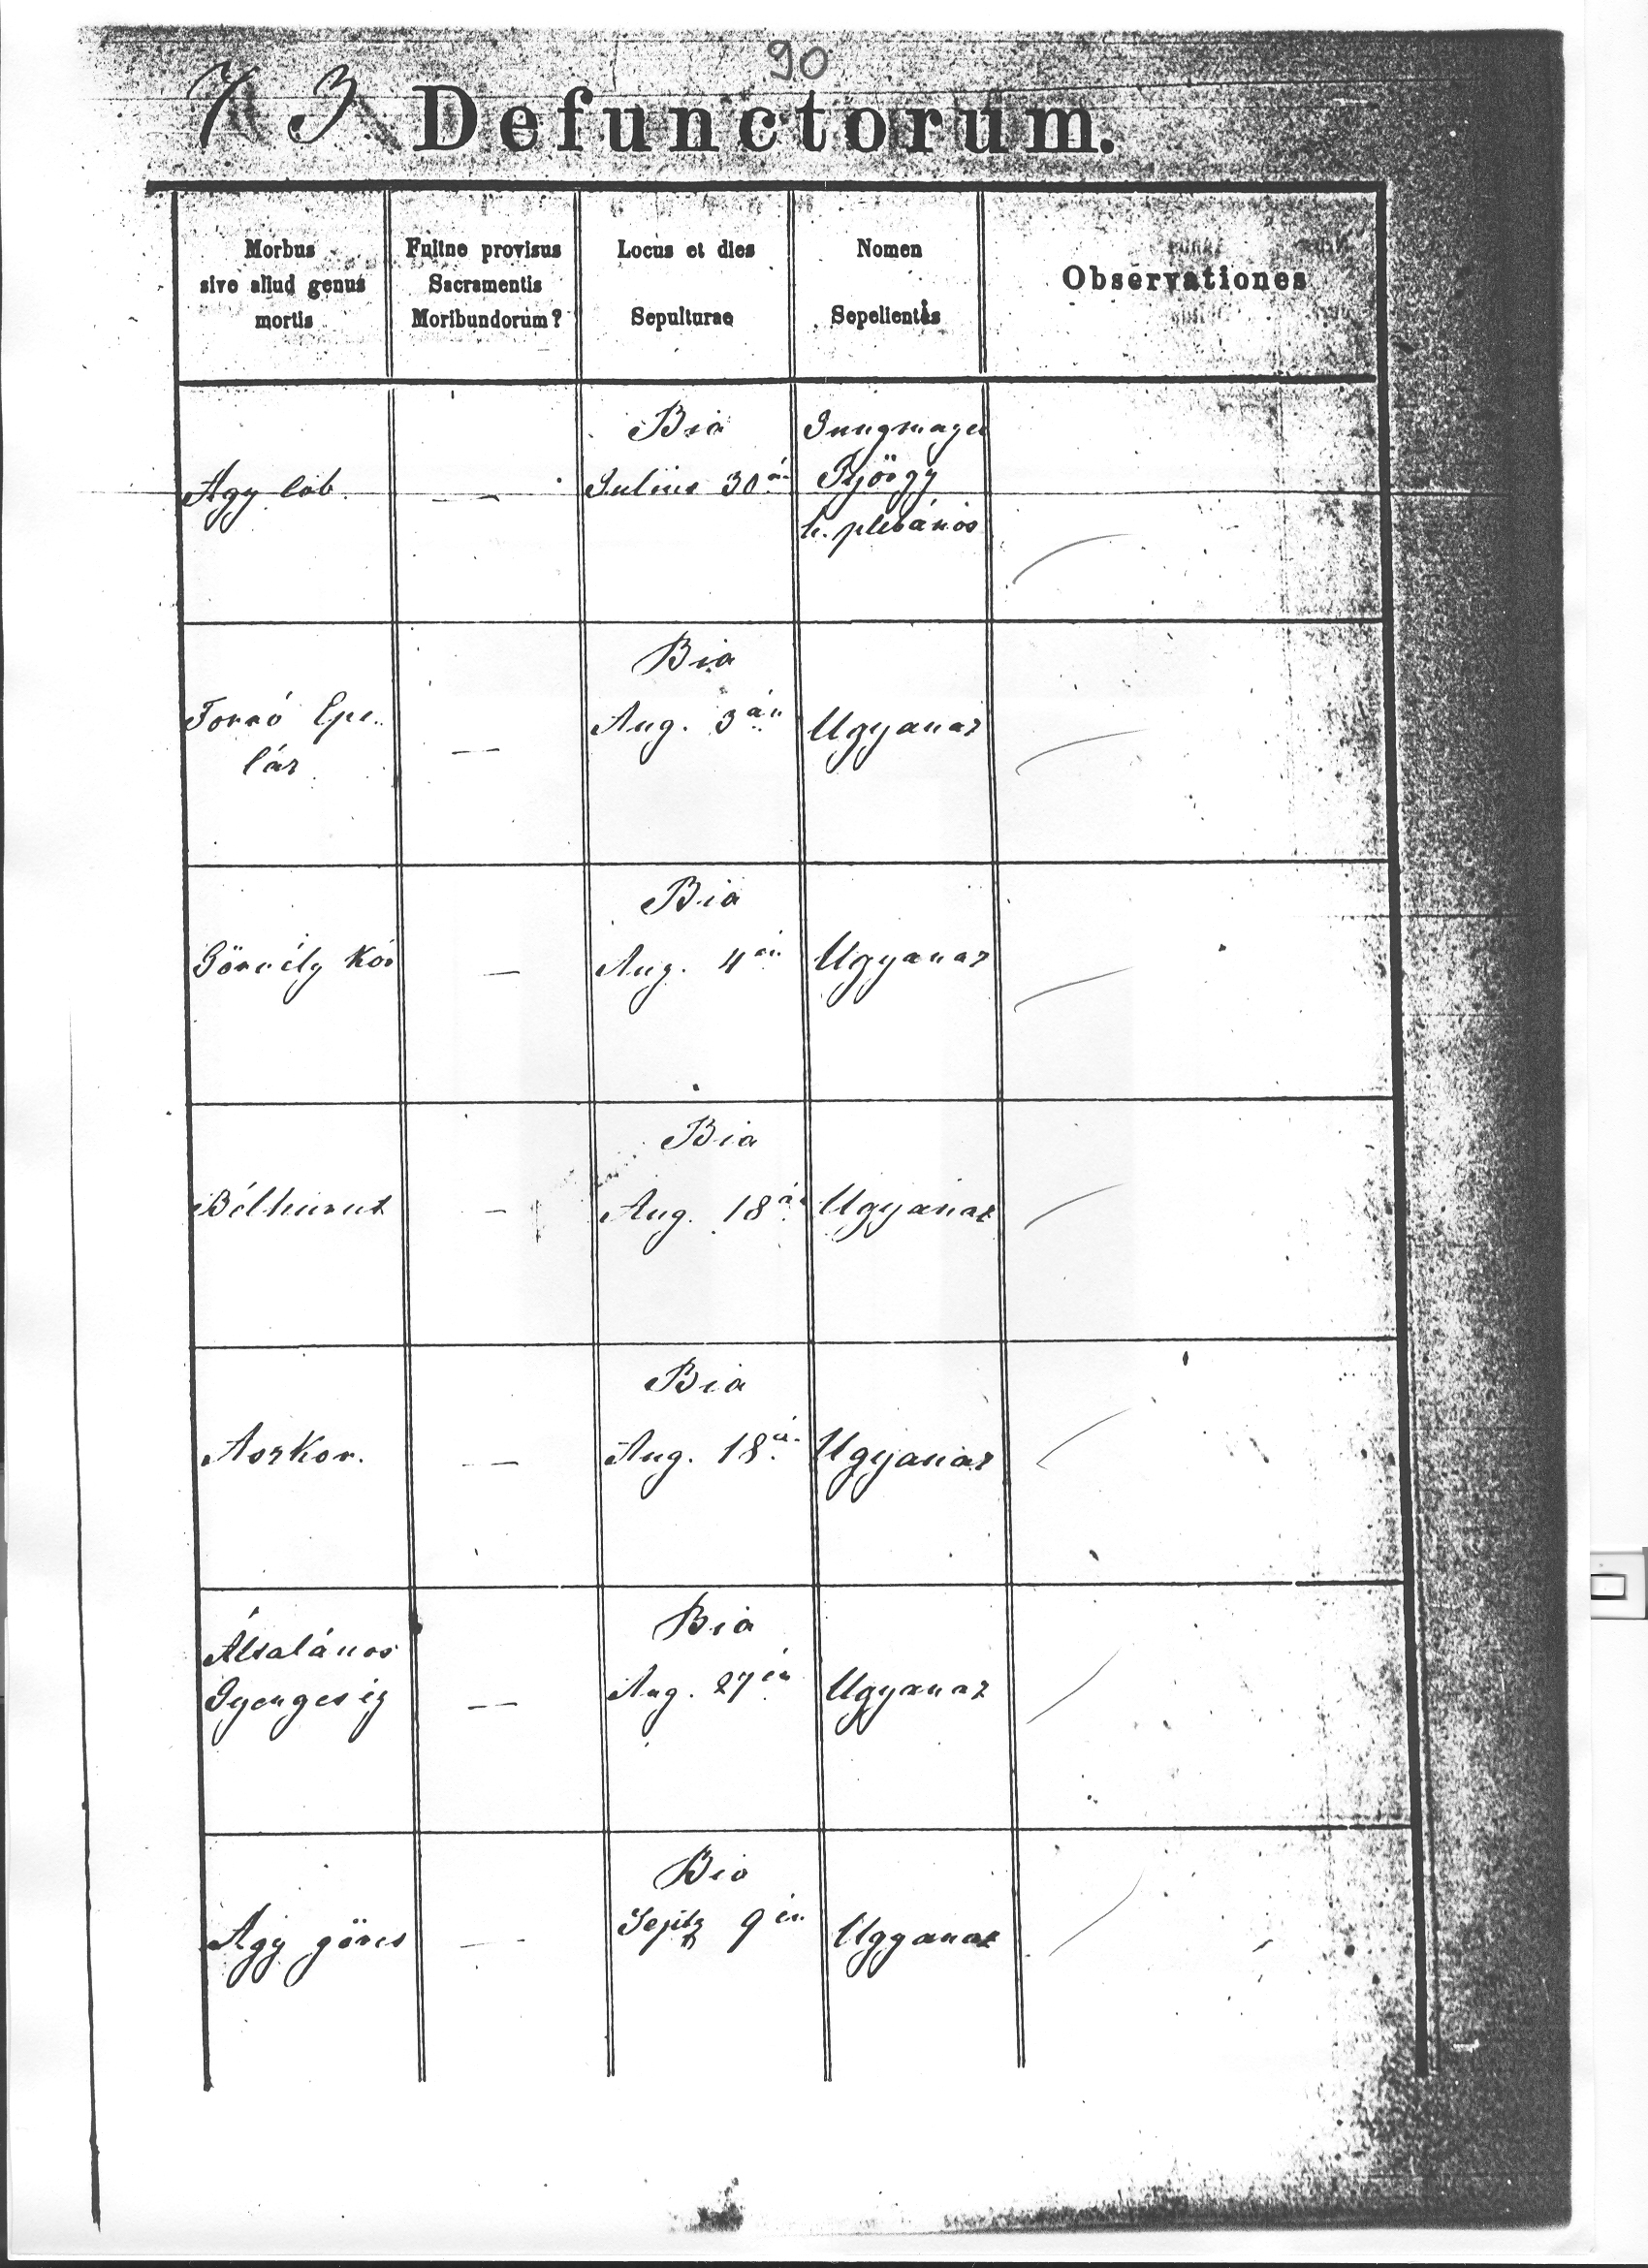 90
73 Defunctorum.
Morbus
sive aliud genus
mortis
Fuitne provisus
Sacramentis
Moribundorum?
Locus et dies
Sepulturae
Nomen
Sepelientis
Observationes
Agy lob.
Bia
Julius 30án
Jungmayer
György
h. plebános
Torró
Bia
Aug. 3án
Ugyanaz
Görvély Kór
Bia
Aug. 4én
Ugyanaz
Bélhurut
Bia
Aug. 18án
Ugyanaz
Aszkor.
Bia
Aug. 18án
Ugyanaz
Általános
Gyengeség
Bia
Aug. 27én
Ugyanaz
Agy görcs
Bia
9én
Ugyanaz